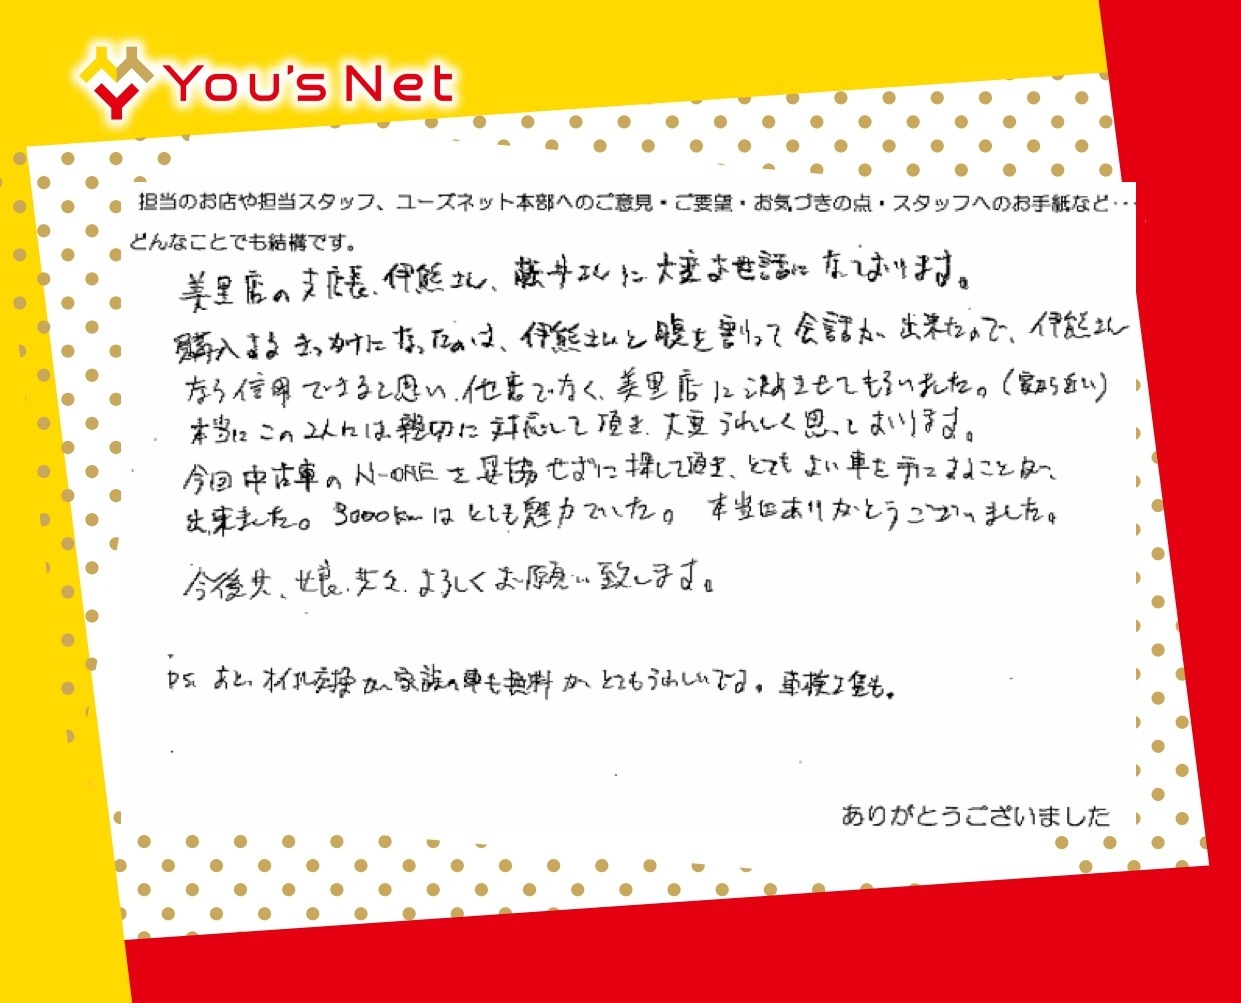 You's Net
担当のお店や担当スタッフ、ユーズネット本部へのご意見・ご要望・お気づきの点・スタッフへのお手紙など…
どんなことでも結構です。
美里店の支店長、伊熊さん、藤井さんに大変お世話になっております。
購入するきっかけになったのは、伊熊さんと腹を割って会話が出来たので、伊熊さん
なら信用できると思い、他店でなく、美里店に決めさせてもらいました。(家から近い)
本当にこの2人には親切に対応して頂き、大変うれしく思っております。
今回中古車のN-ONEを妥協せずに探して頂き、とてもよい車を手にすることが、
出来ました。3000kmはとても魅力でした。本当にありがとうございました。
今後共、娘、共々、よろしくお願い致します。
P.S. あと、オイル交換が家族の車も無料が、とてもうれしいです。車検
ありがとうございました